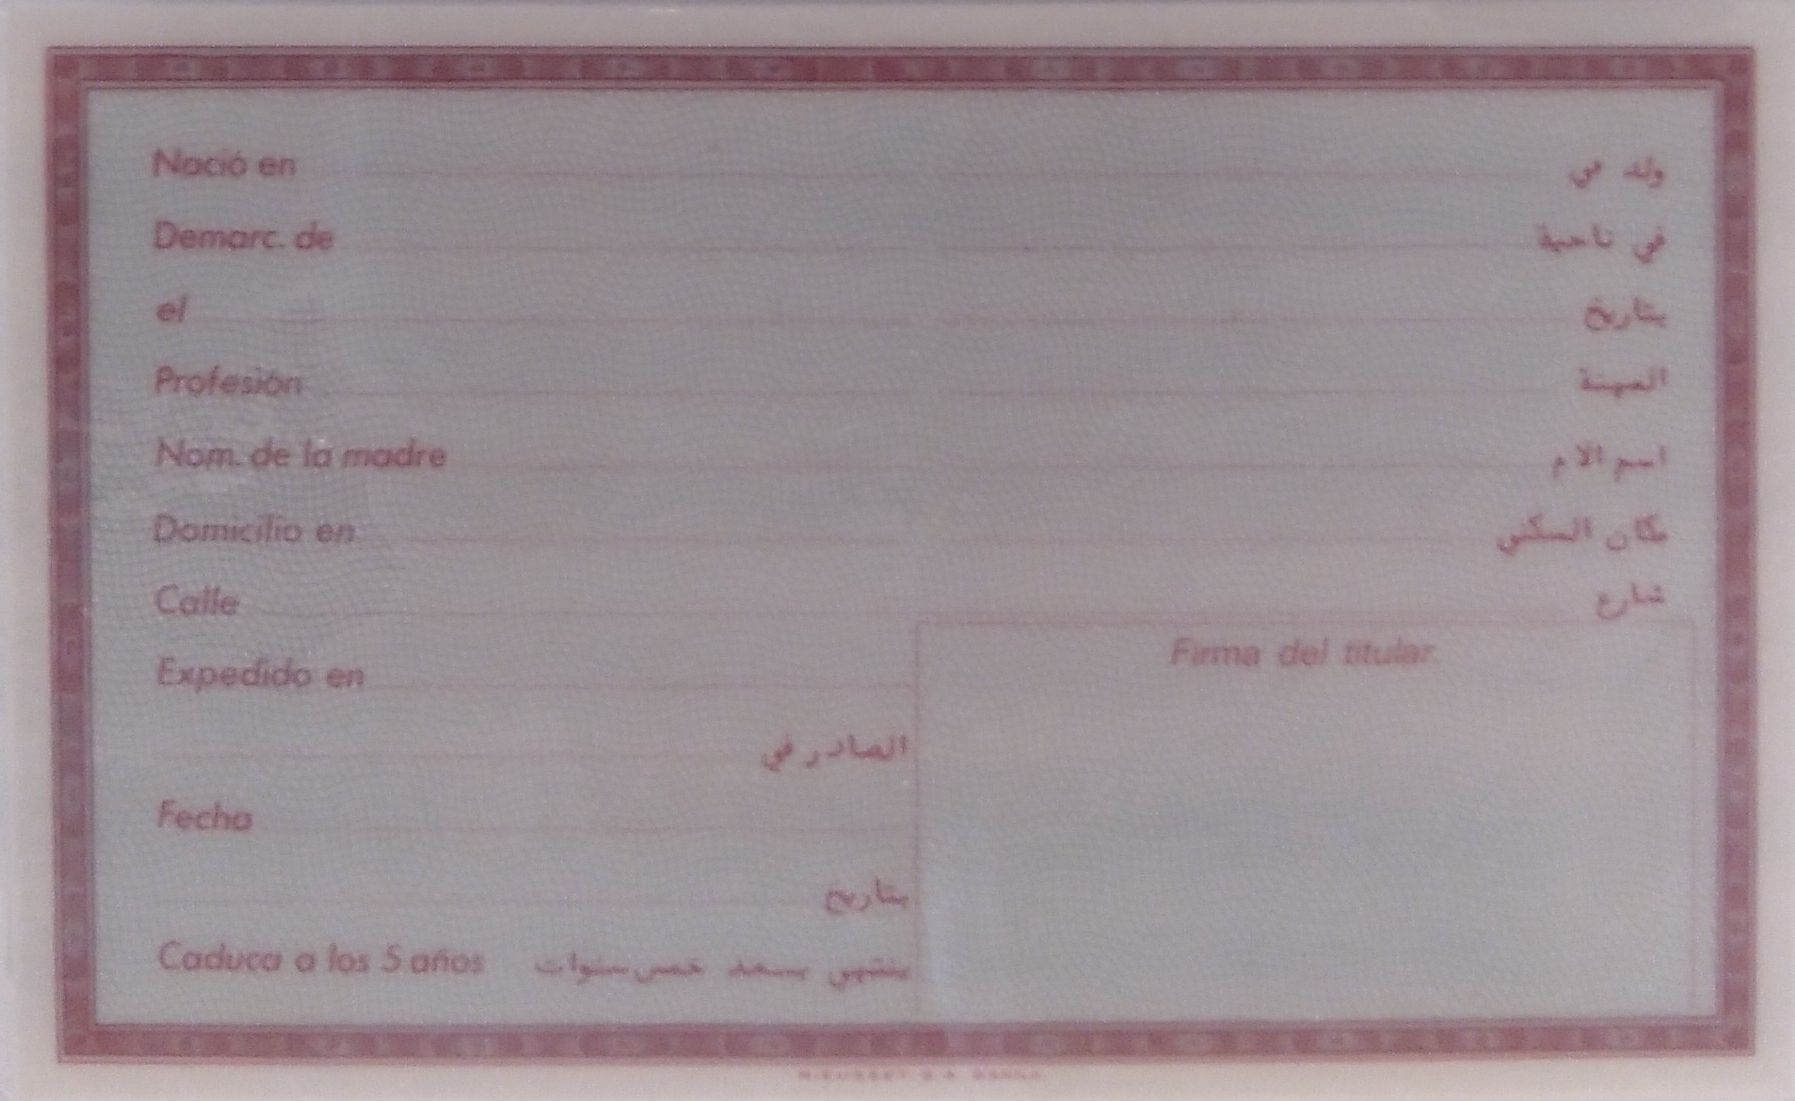 Nació en ولد في
Demarc. de في ناحية
el بتاريخ
Profesión المهنة
Nom. de la madre اسم الام
Domicilio en مكان السكنى
Calle شارع
Firma del titular
Expedido en
الصادر في
Fecha
بتاريخ
Caduca a los 5 años ينتهي بعد خمس سنوات